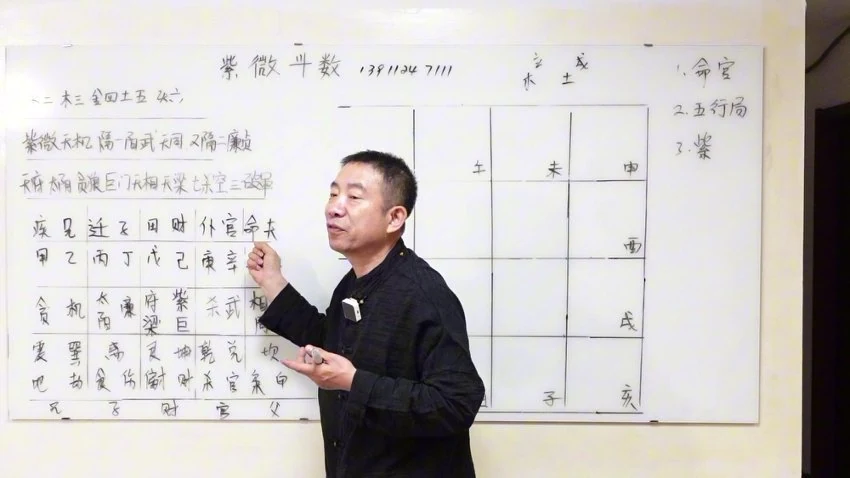 紫微斗数 13911247111
立 戌
木 土
1. 命宫
2. 五行局
3. 紫
一二木三金四土五火六
紫微天机 隔一阳武天同 又隔二廉贞
天府太阴贪狼巨门天相天梁七杀空三破军
疾兄迁子田财仆官命夫
甲乙丙丁戊己庚辛
贪机太阳廉府梁紫巨杀武相
震巽离艮坤乾兑坎
地劫食伤财杀官枭印
兄子财官父
午未申
酉
戌
子亥